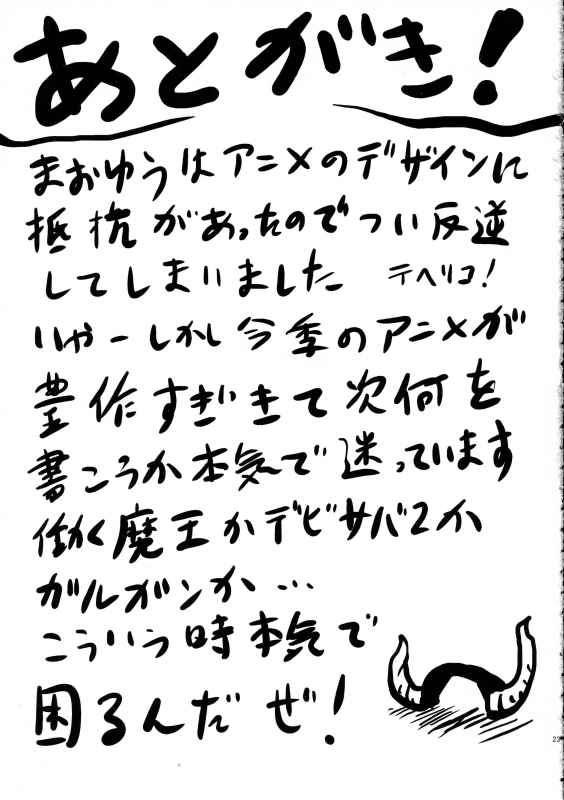 あとがき!
まおゆうはアニメのデザインに
抵抗があったのでつい反逆
してしまいました テヘリコ!
いやーしかし今季のアニメが
豊作すぎきて次何を
書こうか本気で迷っています
働く魔王かデビサバ2か
ガルガンか…
こういう時本気で
困るんだぜ!
23